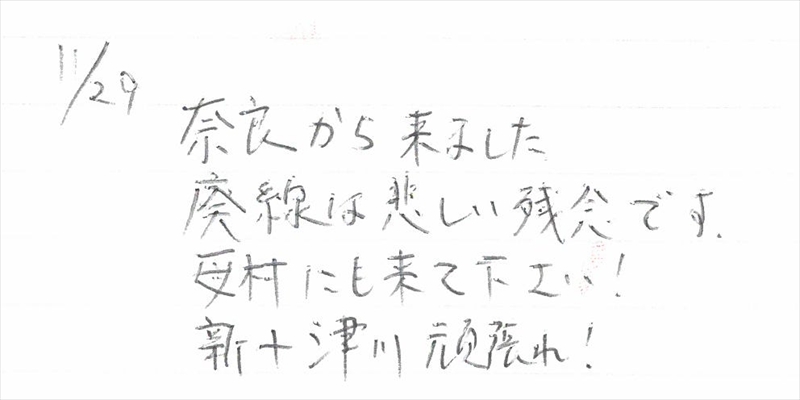 11/29
奈良から来ました
廃線は悲しい残念です.
母村にも来て下さい!
新十津川頑張れ!